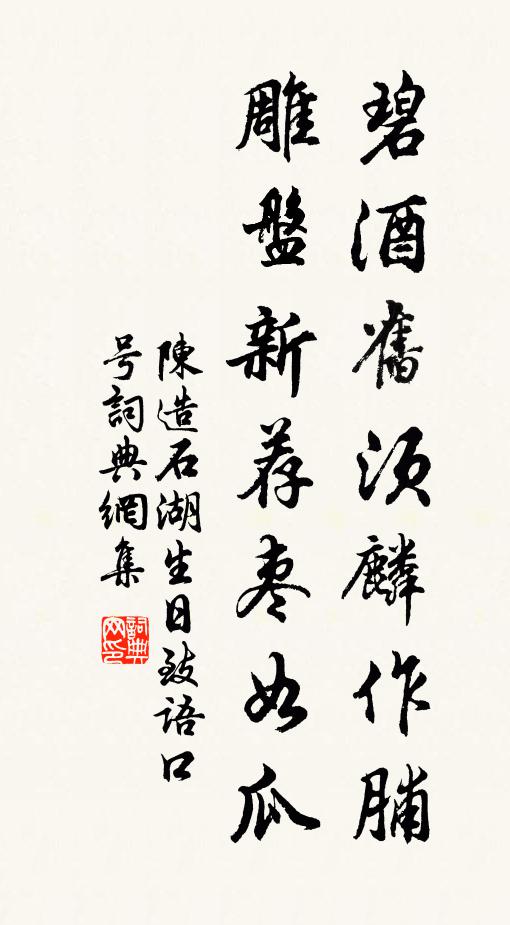 碧酒舊須麟作脯
雕盤新荐枣如瓜
陳造石湖生日致語口
号詞典網集
詞典网印